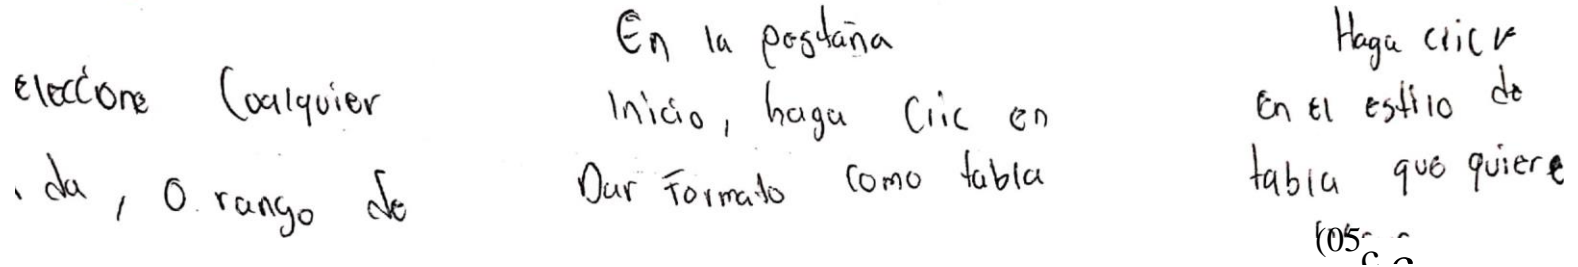 eleccione Coalquier
da, O rango de
En la pestaña
Inicio, haga Clic en
Dar Formato como tabla
Haga clic
En El estilo de
tabla que quiere
(05